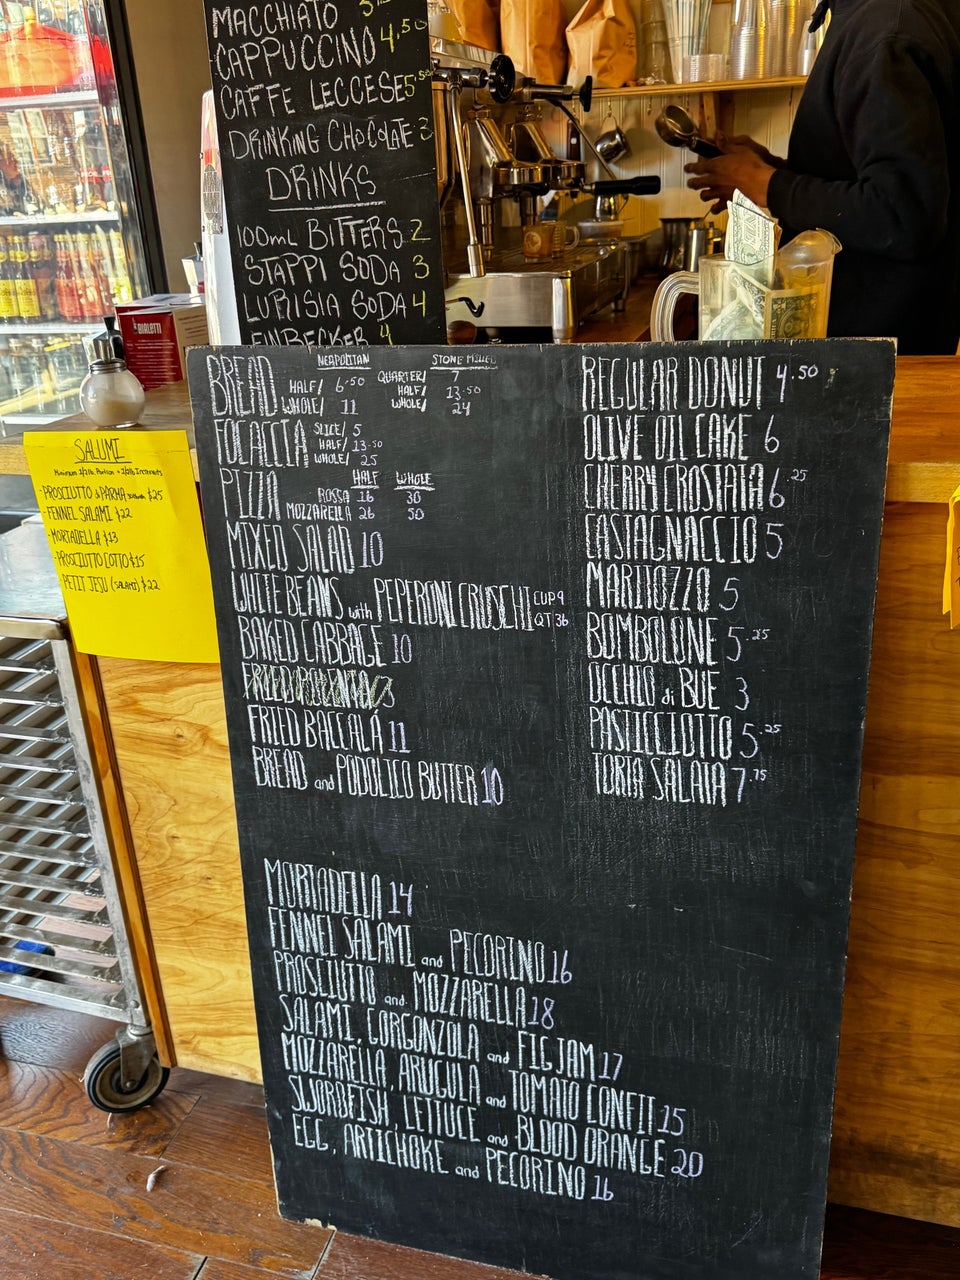 MACCHIATO 3
CAPPUCCINO 4.50
CAFFE LECCESE 5.50
DRINKING CHOCOLATE 3
DRINKS
100mL BITTERS 2
STAPPI SODA 3
LURISIA SODA 4
EINBECKER 4
BIALETTI
SALUMI
- PROSCIUTTO di PARMA $25
- FENNEL SALAMI $22
- MORTADELLA $13
- PROSCIUTTO COTTO $15
- PETIT JESU (SALAMI) $22
BREAD
NEAPOLITAN
HALF/ 6.50
WHOLE/ 11
STONE MILLED
QUARTER/ 7
HALF/ 13.50
WHOLE/ 24
FOCACCIA
SLICE/ 5
HALF/ 13.50
WHOLE/ 25
PIZZA
HALF WHOLE
ROSSA 16 30
MOZZARELLA 26 50
MIXED SALAD 10
WHITE BEANS with PEPERONI CRUSCHI CUP 9 QT 36
BAKED CABBAGE 10
FRIED POLENTA 3
FRIED BACCALÁ 11
BREAD and PODOLICO BUTTER 10
REGULAR DONUT 4.50
OLIVE OIL CAKE 6
CHERRY CROSTATA 6.25
CASTAGNACCIO 5
MARITOZZO 5
BOMBOLONE 5.25
OCCHIO di BUE 3
PASTICCIOTTO 5.25
TORTA SALATA 7.75
MORTADELLA 14
FENNEL SALAMI and PECORINO 16
PROSCIUTTO and MOZZARELLA 18
SALAMI, GORGONZOLA and FIG JAM 17
MOZZARELLA, ARUGULA and TOMATO CONFIT 15
SWORDFISH, LETTUCE and BLOOD ORANGE 20
EGG, ARTICHOKE and PECORINO 16